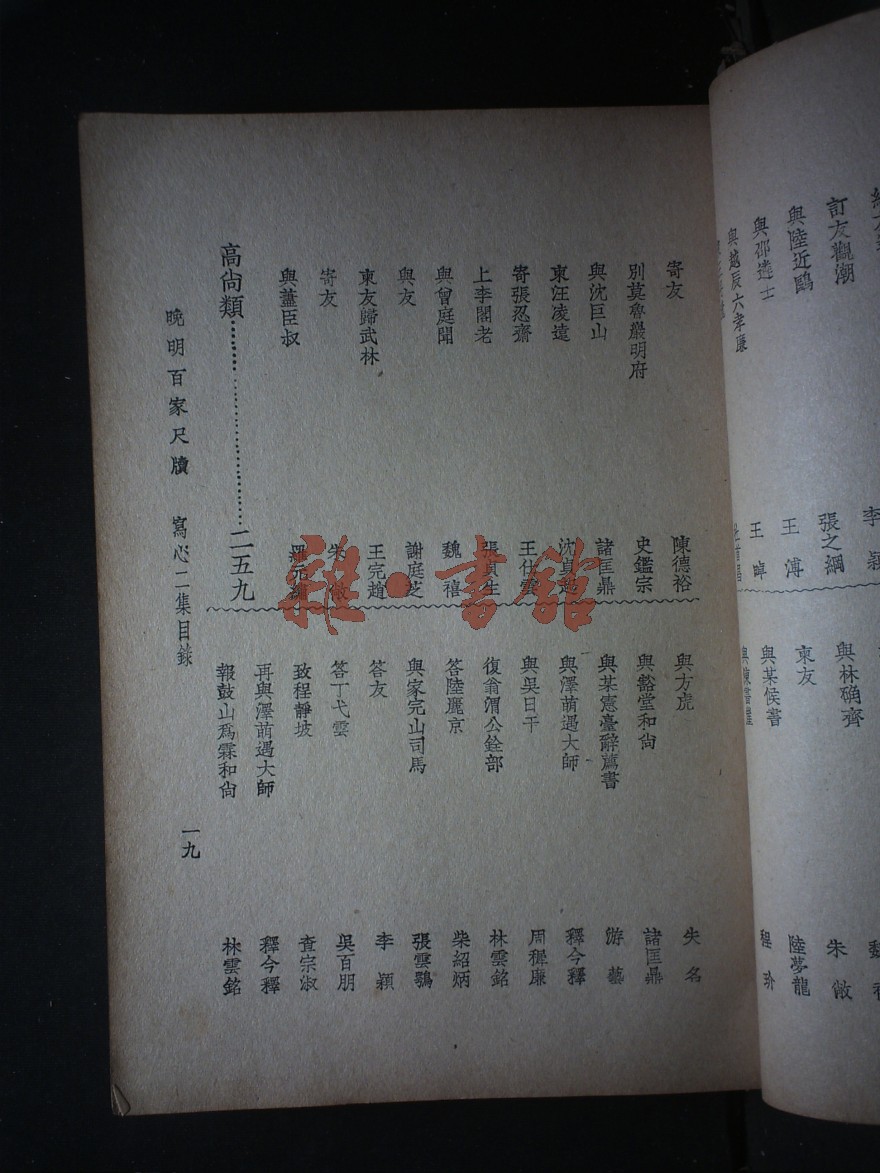 訂友觀潮
張之綱
與陸近鷗
王溥
與邵遠士
王晫
與越辰六孝廉
與林确齊
朱倣
柬友
陸夢龍
與某侯書
程玠
寄友
陳德裕
別莫魯巖明府
史鑑宗
與沈巨山
諸匡鼎
柬汪凌遠
沈
寄張忍齋
王仕雲
上李閣老
張貞生
與曾庭聞
魏禧
與友
謝庭芝
柬友歸武林
王完趙
寄友
朱倣
與藎臣叔
羅
高尙類⋯⋯⋯⋯⋯⋯⋯⋯二五九
與方虎
失名
與豁堂和尙
諸匡鼎
與某憲臺辭薦書
游藝
與澤萌遇大師
釋今釋
與吳日千
周穉廉
復翁渭公銓部
林雲銘
答陸麗京
柴紹炳
與家完山司馬
張雲鶚
答友
李穎
答丁弋雲
吳百朋
致程靜坡
査宗淑
再與澤萌遇大師
釋今釋
報鼓山爲霖和尙
林雲銘
晚明百家尺牘 寫心二集目錄
一九
雜·書館